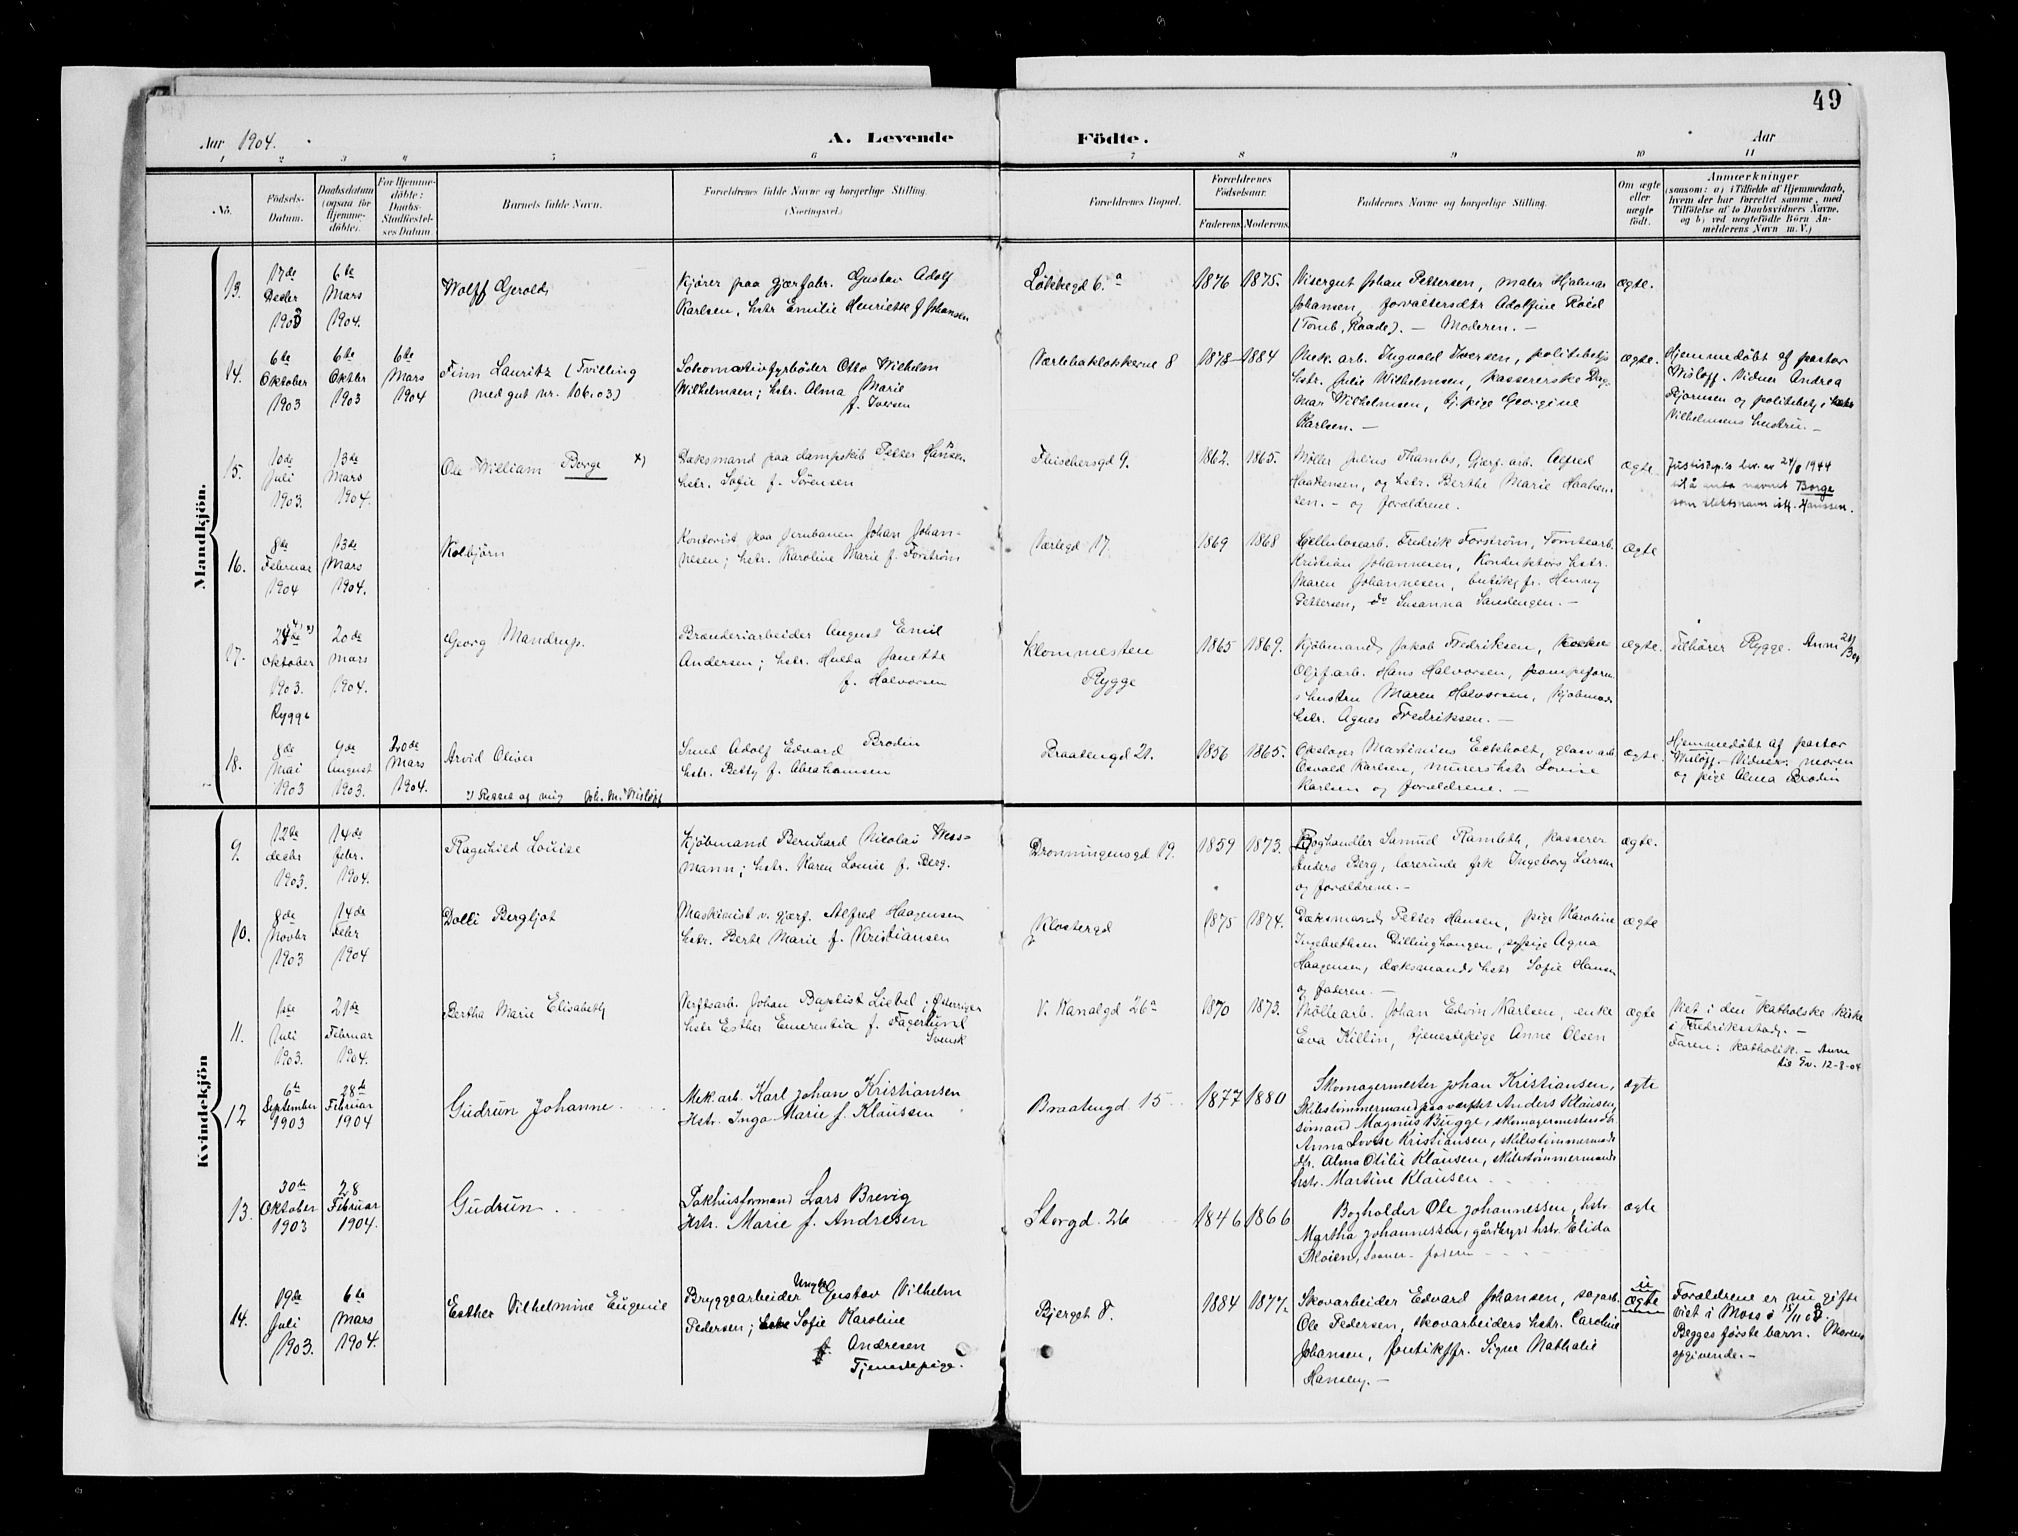 49
Aar 1904.
A. Levende Födte.
Aar
1 2 3 4 5 6 7 8 9 10 11
No.
Födsels-Datum.
Daabsdatum (ogsaa for Hjemme-döbte).
For Hjemme-döbte: Daabs-Stadfæstel-ses Datum.
Barnets fulde Navn.
Forældrenes fulde Navne og borgerlige Stilling. (Næringsvei.)
Forældrenes Bopæl.
Forældrenes Födselsaar.
Faderens Moderens
Faddernes Navne og borgerlige Stilling.
Om ægte eller uægte födt.
Anmærkninger
(saasom: a) i Tilfælde af Hjemmedaab,
hvem der har forrettet samme, med
Tilföielse af to Daabsvidners Navne,
og b) ved uægtefödte Börn An-
melderens Navn m. V.)
Mandkjön.
13.
17de Decbr 1903
6te Mars 1904.
Wolff Gerold
Kjører paa gjærfabr. Gustav Adolf
Karlsen, hstr Emilie Henriette f Johansen
Løkkegd 6.a
1876 1875.
Visergut Johan Pettersen, maler Hjalmar
Johansen, forvaltersdtr Adolfine Roёd
(Tomb, Raade). — Moderen. —
ægte.
14.
6te Oktober 1903
6te Oktbr 1903
6te Mars 1904
Finn Lauritz (Tvilling
med gut nr. 106, 03)
Lokomotivfyrbøder Otto Wilhelm
Wilhelmsen; hstr. Alma Marie
f. Iversen
Værlebakløkkerne 8
1878 1884
Mek. arb. Ingvald Iversen, politibetj.
hstr. Julie Wilhelmsen, kassererske Dag-
mar Wilhelmsen, tj. pige Georgine
Karlsen. —
ægte.
Hjemmedøbt af pastor
Wisløff. Vidner Andrea
Bjørnsen og politibetj.
Vilhelmsens hustru. —
15.
10de Juli 1903.
13de Mars 1904.
Ole William Borge x)
Dæksmand paa dampskib Petter Hansen
hstr. Sofie f. Sørensen
Fleischersgd 9.
1862. 1865.
Møller Julius Thambs, Gjærf. arb. Alfred
Haakensen, og hstr. Berthe Marie Haaken-
sen. — og forældrene.
ægte.
Justisdep.s bev. av 24/8 1944
til å anta navnet Borge
som slektsnavn istf. Hanssen.
16.
8de Februar 1904
13de Mars 1904.
Kolbjörn
Kontorist paa Jernbanen Johan Johan-
nesen; hstr. Karoline Marie f. Forström
Værlegd 17.
1869 1868
Cellulosearb. Fredrik Forström, Tomtearb.
Kristian Johannesen, Konduktørs hstr.
Maren Johannesen, butikfr. Henny
Pettersen, do Susanna Sandengen. —
ægte
17.
24de Oktober 1903. Rygge
20de Mars 1904.
Georg Mandrup.
Brænderiarbeider August Emil
Andersen; hstr. Hulda Janette
f. Halvorsen
Klommesten
Rygge
1865 1869.
Kjöbmand Jakob Fredriksen,
Oljef. arb. Hans Halvorsen, pompeform.
hustru Maren Halvorsen, Kjöbmands
hstr. Agnes Fredriksen. —
ægte.
Tilhører Rygge. Anm 21/3 04
18.
8de Mai 1903
9de August 1903.
20de Mars 1904.
Arvid Oliver
Smed Adolf Edvard Brodin
hstr. Betty f. Abrahamsen
x) Rettet af mig Joh. M. Wisløff
Braatengd 21.
1856 1865.
Opslager Martinius Eckholt, glasv. arb
Osvald Karlsen, murers hstr Lovise
Karlsen og forældrene. —
ægte.
Hjemmedøbt af pastor
Wisløff. Vidner: moren
og pige Alma Brodin
Kvindekjön
9.
12te decbr 1903.
14de febr. 1904.
Ragnhild Louise
Kjöbmand Bernhard Nicolai Wess-
mann; hstr. Karen Louise f. Berg.
Dronningensgd 19.
1859 1873.
Boghandler Samuel Flamboth, kasserer
Anders Berg, lærerinde frk Ingeborg Larsen
og forældrene. —
ægte.
10.
8de Novbr 1903
14de Febr 1904
Dolli Bergljot
Maskinist v. gjærf. Alfred Haagensen
hstr. Berte Marie f. Kristiansen
Klostergd
1875 1874.
Dæksmand Petter Hansen, pige Karoline
Ingebrethsen Dillinghaugen, pige Agna
Haagensen, dæksmands hstr Sofie Hansen
og faderen. —
ægte
11.
1ste Juli 1903.
21de Februar 1904.
Bertha Marie Elisabeth
Verftsarb. Johan Baptist Liebel; Østerriger
hstr Esther Emerentia f. Fagerlund
Svensk
V. Kanalgd 26a
1870 1873.
Møllearb. Johan Edvin Karlsen, enke
Eva Killin, tjenestepige Anne Olsen
ægte
Viet i den katholske kirke
i Fredriksstad. —
Faren: katholik. — Anm
til Gv. 12-8-04
12
6te September 1903
28de Februar 1904
Gudrun Johanne.
Mek. arb. Karl Johan Kristiansen
Hstr. Inga Marie f. Klausen
Braatengd. 15
1877 1880
Skomagermester Johan Kristiansen,
Skibstömmermand paa værftet Anders Klausen,
sömand Magnus Bugge, skomagermestersdtr
Anna Lovise Kristiansen, skibstömmermands
dtr. Alma Otilie Klausen, skibstömmermands
hstr. Martine Klausen
ægte
13.
30te Oktober 1903
28 Februar 1904.
Gudrun
Pakhusformand Lars Brevig
Hstr. Marie f. Andresen
Storgd. 26
1846 1866
Bogholder Ole Johannessen, hstr.
Martha Johannessen, gårdbrugs hstr. Elida
Moien, Soner. faderen
ægte
14.
19de Juli 1903.
6te Mars 1904.
Esther Vilhelmine Eugenie
Bryggearbeider Ungk Gustav Vilhelm
Pedersen; Sofie Karoline
f. Andresen
Tjenestepige.
Bjerget 8.
1884 1877.
Skovarbeider Edvard Johansen, sagarb.
Ole Pedersen, skovarbeiders hstr. Caroline
Johansen, butikfr. Signe Nathalie
Hansen. —
uægte
Forældrene er nu gifte
viet i Moss 15/11 08
Begges første barn. Morens
opgivende. —